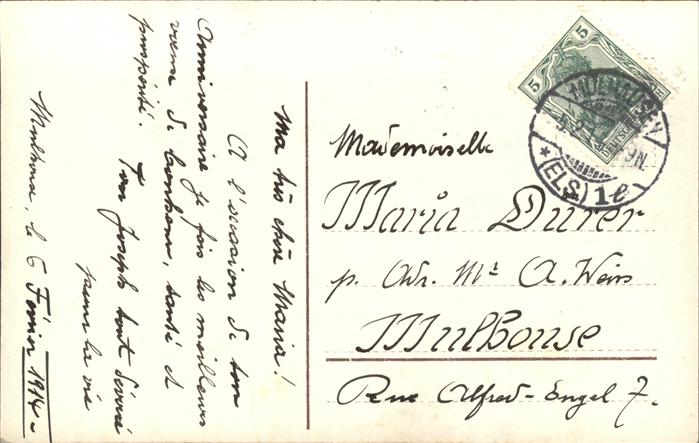 Ma très chère Maria!
A l'occasion de ton
Anniversaire je fais les meilleurs
voeux de bonheur, santé et
prospérité.
Ton Joseph tout dévoué
pour la vie
Mulhouse, le 6 Février 1914.
5
5
MÜLHAUSEN
9N.
*(ELS.) 1 l
Mademoiselle
Maria Durer
p. Adr. Mr A. Weiss
Mulhouse
Rue Alfred-Engel 7.